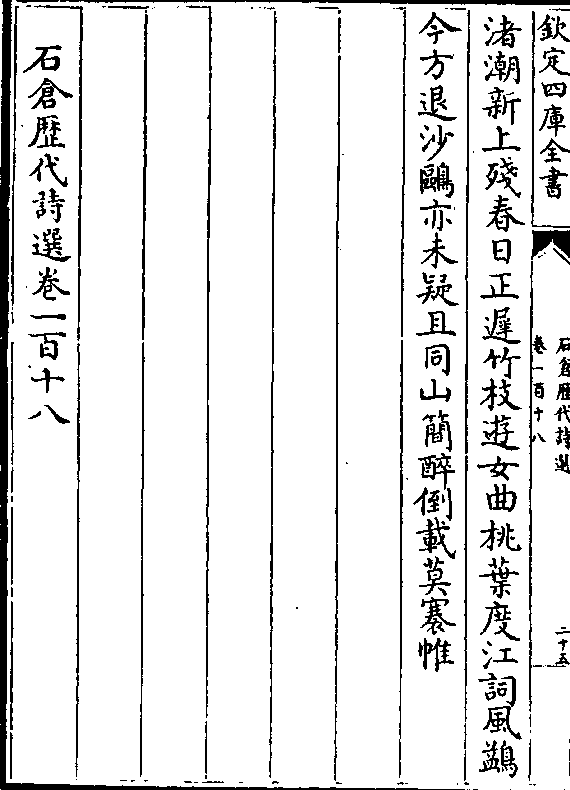 欽定四庫全書
石倉歴代詩選
卷一百十八
二十五
渚潮新上殘春日正遲竹枝遊女曲桃葉度江詞風鷁
今方退沙鷗亦未疑且同山簡醉倒載莫褰帷
石倉歴代詩選卷一百十八